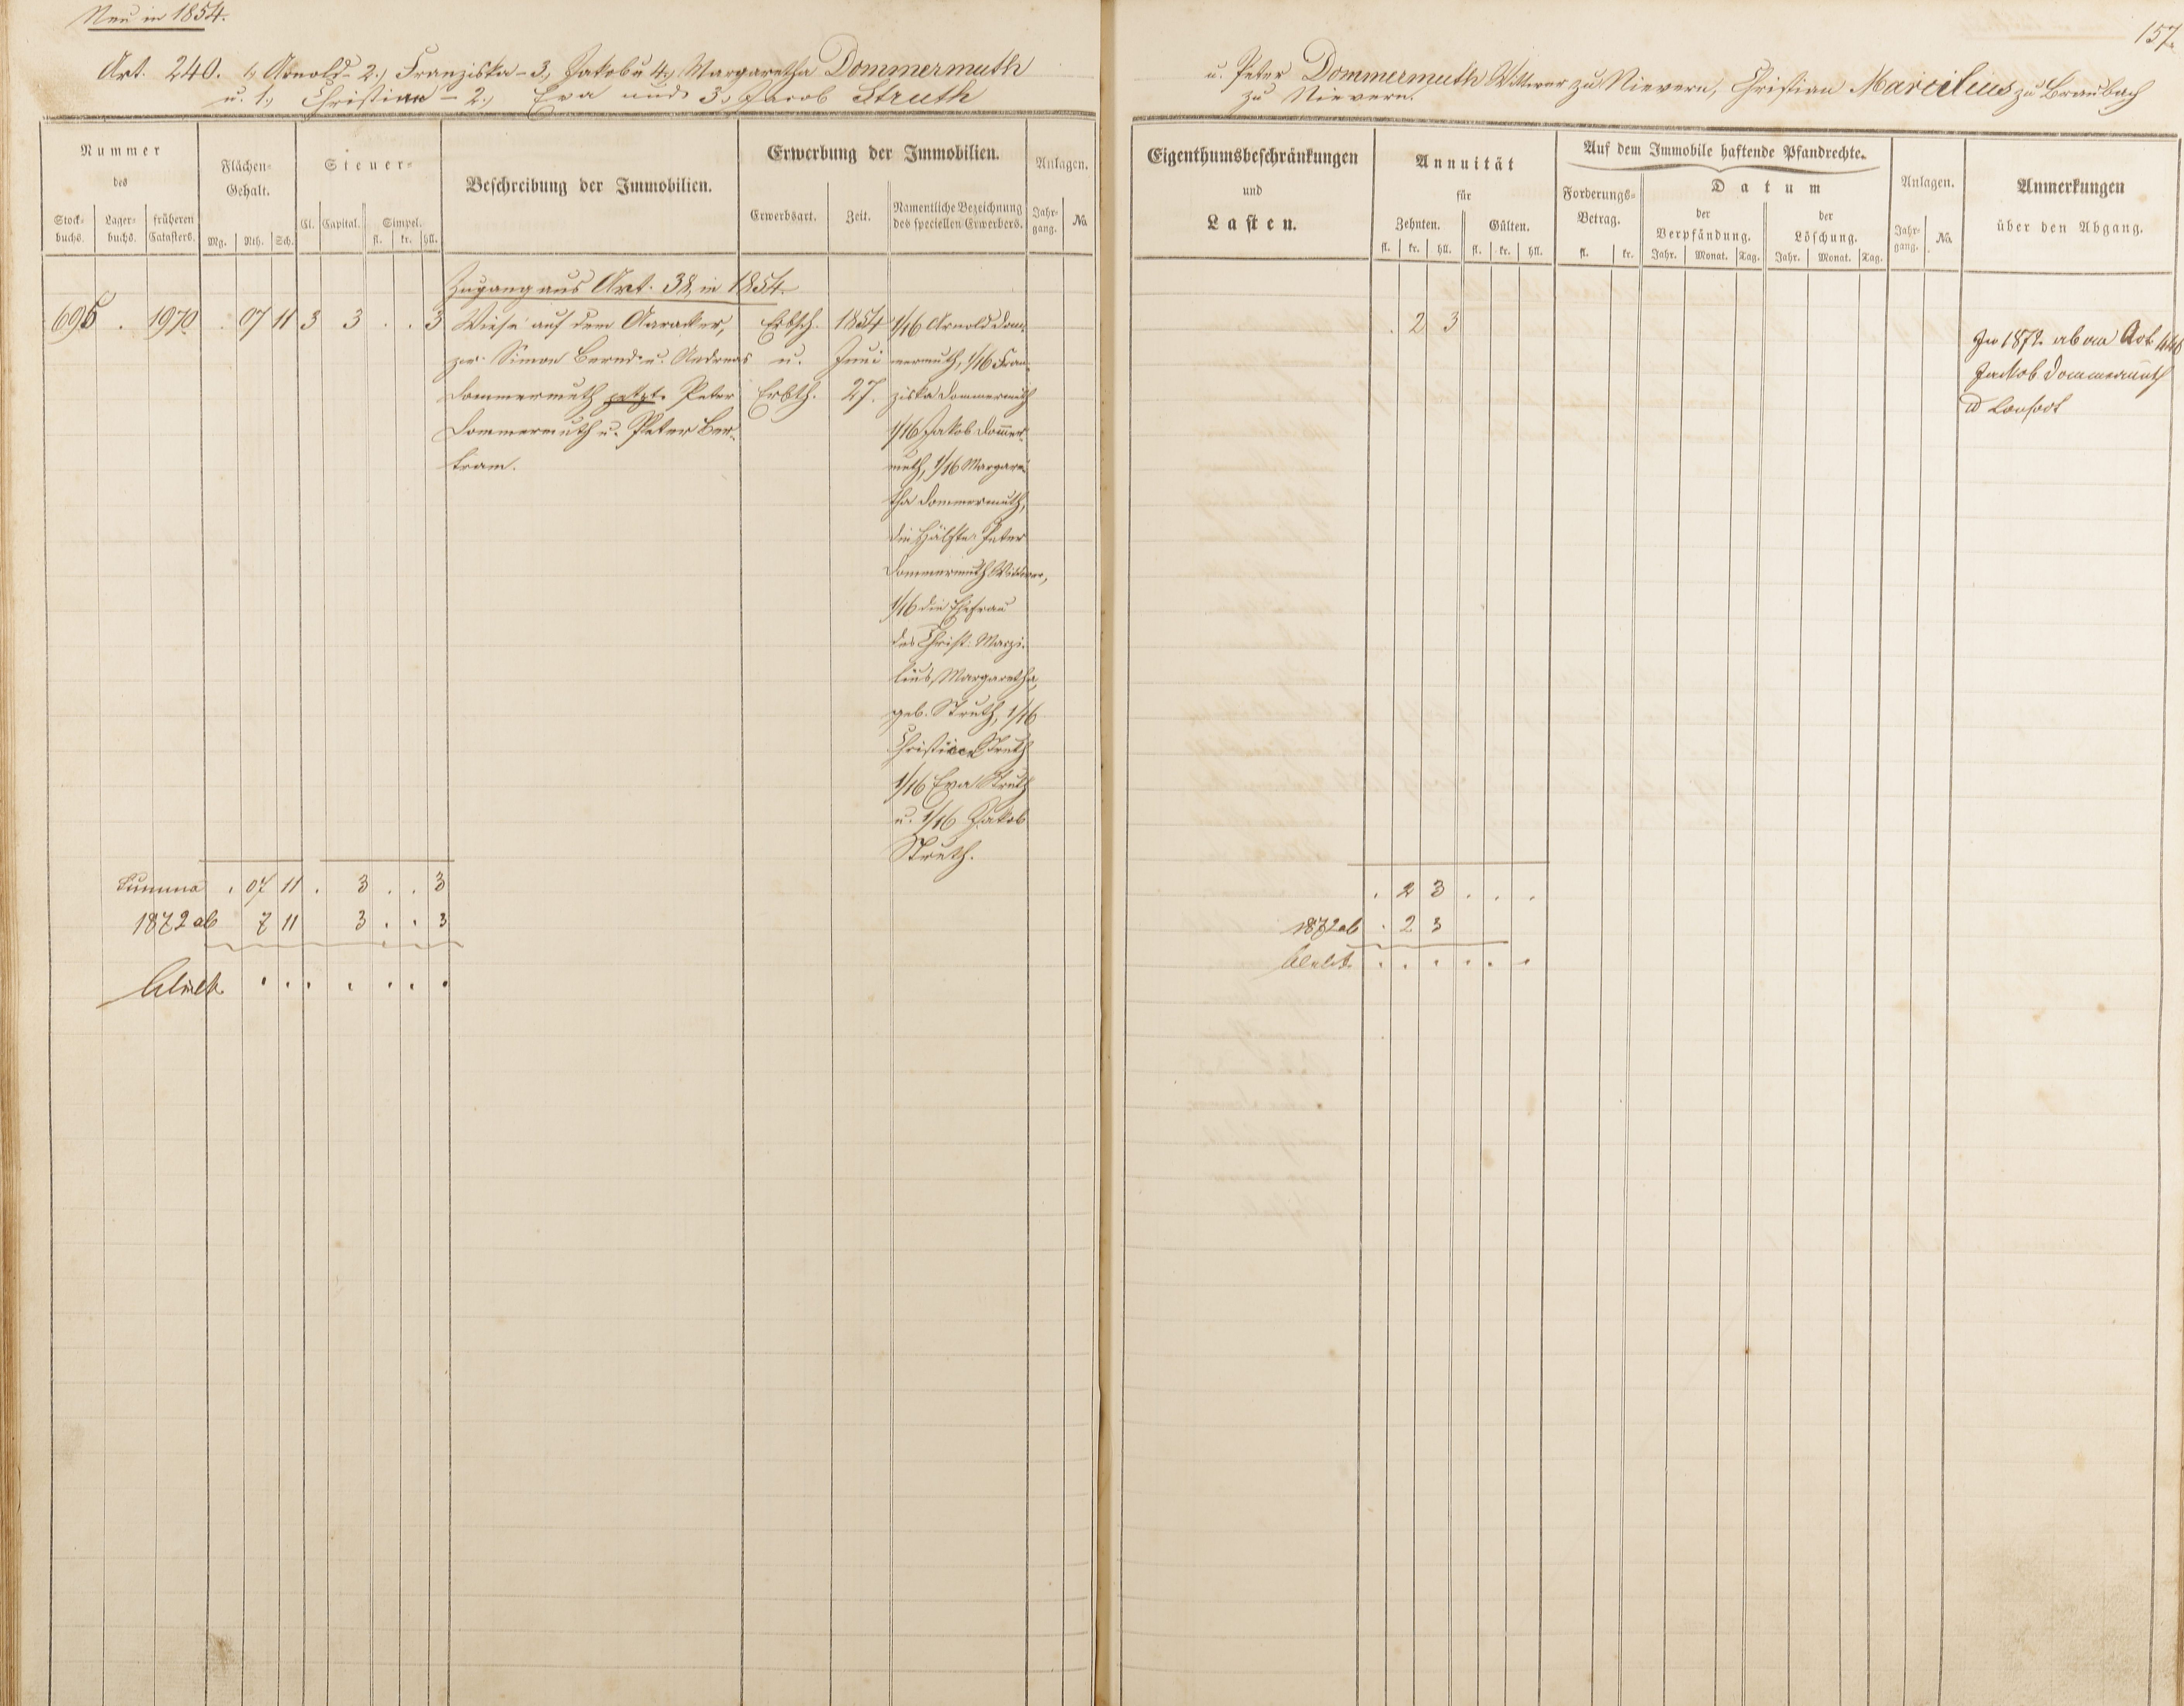 Neu in 1854.
Art. 240. 1, Arnold - 2, Franziska - 3, Jakob u 4, Margaretha Dommermuth
u. 1, Christian - 2, Eva und 3. Jacob Struth
Nummer
des
Stock-
buchs.
Lager-
buchs.
früheren
Catasters.
Flächen-
Gehalt.
Mg. Rth. Sch.
Steuer-
Cl. Capital. Simpel.
fl. kr. hll.
Beschreibung der Immobilien.
Erwerbung der Immobilien.
Erwerbsart. Zeit.
Namentliche Bezeichnung
des speciellen Erwerbers.
Anlagen.
Jahr-
gang.
No.
Zugang aus Art. 38 in 1854.
695 . 1970 . 07 11 3 3 . . 3
Wiese auf dem Aaracker,
zw. Simon Bernd u. Andreas
Dommermuth jetzt Peter
Dommermuth u. Peter Ber-
tram.
Erbsch.
u.
Erbth.
1854
Juni
27.
1/16 Arnold Dom-
mermuth, 1/16 Fran-
ziska Dommermuth
1/16 Jakob Dommer-
muth, 1/16 Margare-
tha Dommermuth,
die Hälfte Peter
Dommermuth Wittwer,
1/16 die Ehefrau
des Christ. Marzi-
lius Margaretha,
geb. Struth, 1/16
Christian Struth
1/16 Eva Struth
u. 1/16 Jakob
Struth.
Summa . 07 11 . 3 . . 3
1872 ab 7 11 3 . . 3
bleibt . . . . . . .
157.
u. Peter Dommermuth Wittwer zu Nievern, Christian Marcilius zu Braubach
zu Nievern.
Eigenthumsbeschränkungen
und
Lasten.
Annuität
für
Zehnten. Gülten.
fl. kr. hll. fl. kr. hll.
Auf dem Immobile haftende Pfandrechte.
Forderungs-
Betrag.
fl. kr.
Datum
der
Verpfändung.
Jahr. Monat. Tag.
der
Löschung.
Jahr. Monat. Tag.
Anlagen.
Jahr-
gang.
No.
Anmerkungen
über den Abgang.
. 2 3
In 1872 ab an Art 446
Jackob Dommermuth
. 2 3 . . .
1872 ab . 2 3
bleibt . . . . . .